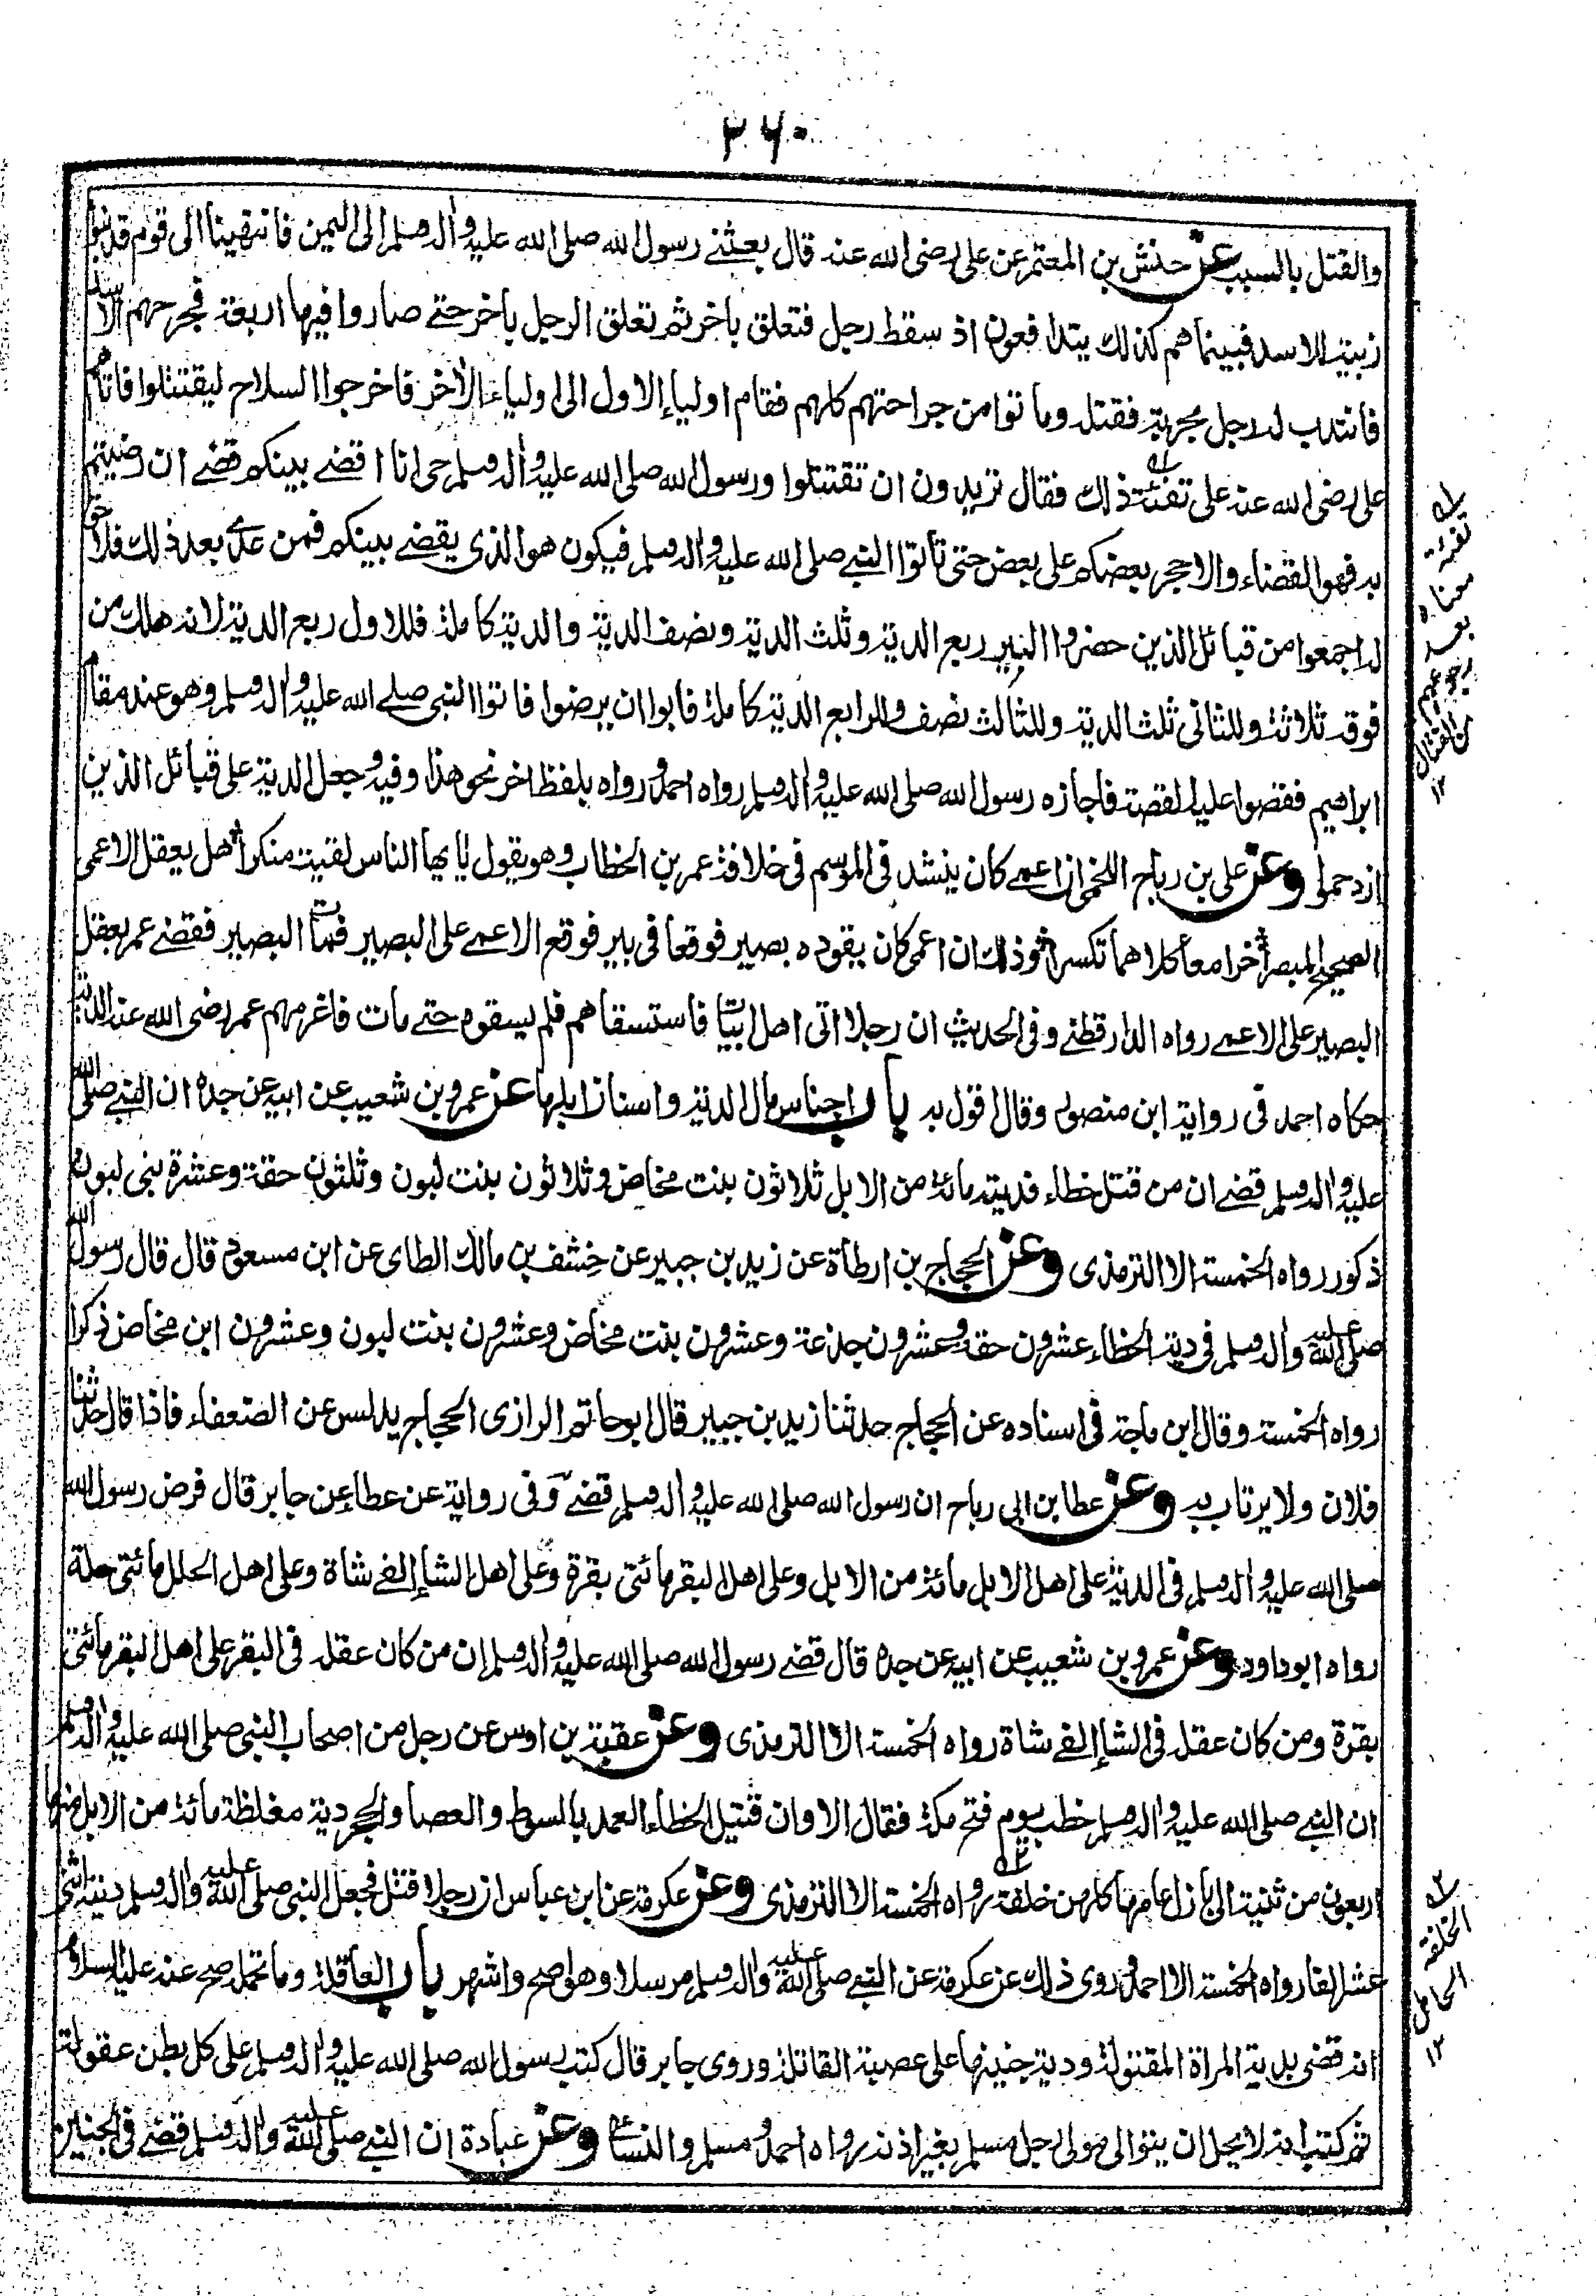 ٣٦٠
والقتل بالسبب عن حنش بن المعتمر عن على رضى الله عنه قال بعثنى رسول الله صلى الله عليه واله وسلم الى اليمن فانتهينا الى قوم قد بنوا
زبية للاسد فبينما هم كذلك يتدافعون اذ سقط رجل فتعلق باخر ثم تعلق الرجل باخر حتے صاروا فيها اربعة فجرحهم الاسد
فانتدب له رجل بحربة فقتله وماتوا من جراحتهم كلهم فقام اولياء الاول الى اولياء الأخر فاخرجوا السلاح ليقتتلوا فاتاهم
على رضى الله عنه على تفئة ذلك فقال تريدون ان تقتتلوا ورسول الله صلى الله عليه واله وسلم حى انا اقضے بينكم قضے ان رضيتم
به فهو القضاء والا حجر بعضكم على بعض حتى تأتوا النبے صلى الله عليه واله وسلم فيكون هو الذى يقضے بينكم فمن عدے بعد ذلك فلا حق
له اجمعوا من قبائل الذين حضروا البير ربع الدية وثلث الدية ونصف الدية والدية كاملة فللاول ربع الدية لانه هلك من
فوقه ثلاثة وللثانى ثلث الدية وللثالث نصف وللرابع الدية كاملة فابوا ان يرضوا فاتوا النبى صلے الله عليه واله وسلم وهو عند مقام
ابراهيم فقصوا عليه القصة فاجازه رسول الله صلى الله عليه واله وسلم رواه احمد ورواه بلفظ اخر نحو هذا وفيه وجعل الدية على قبائل الذين
ازدحموا وعن على بن رباح اللخمى ان اعمے كان ينشد فى الموسم فى خلافة عمر بن الخطاب وهو يقول يٰايها الناس لقيت منكرا هل يعقل الاعمى
الصحيح المبصرا خرا معا كلاهما تكسرا وذلك ان اعمى كان يقوده بصير فوقعا فى بير فوقع الاعمے على البصير فمات البصير فقضے عمر بعقل
البصير على الاعمے رواه الدارقطنے وفى الحديث ان رجلا اتى اهل ابيات فاستسقاهم فلم يسقوه حتے مات فاغرمهم عمر رضى الله عنه الدية
حكاه احمد فى رواية ابن منصور وقال اقول به باب اجناس مال الدية واسنان ابلها عن عمرو بن شعيب عن ابيه عن جده ان النبے صلى الله
عليه واله وسلم قضے ان من قتل خطاء فديته مائة من الابل ثلاثون بنت مخاض وثلاثون بنت لبون وثلثون حقة وعشرة بنى لبون
ذكور رواه الخمسة الا الترمذى وعن الحجاج بن ارطأة عن زيد بن جبير عن خشف بن مالك الطاى عن ابن مسعود قال قال رسول الله
صلى الله عليه واله وسلم فى دية الخطاء عشرون حقة وعشرون جذعة وعشرون بنت مخاض وعشرون بنت لبون وعشرون ابن مخاض ذكرا
رواه الخمسة وقال ابن ماجة فى اسناده عن الحجاج حدثنا زيد بن جبير قال ابو حاتم الرازى الحجاج يدلس عن الضعفاء فاذا قال حدثنا
فلان ولا يرتاب به وعن عطا بن ابى رباح ان رسول الله صلى الله عليه واله وسلم قضے وفى رواية عن عطاء عن جابر قال فرض رسول الله
صلى الله عليه واله وسلم فى الدية على اهل الابل مائة من الابل وعلى اهل البقر مائتى بقرة وعلى اهل الشاء الفے شاة وعلى اهل الحلل مائتى حلة
رواه ابو داود وعن عمرو بن شعيب عن ابيه عن جده قال قضے رسول الله صلى الله عليه واله وسلم ان من كان عقله فى البقر على اهل البقر مائتى
بقرة ومن كان عقله فى الشاء الفے شاة رواه الخمسة الا الترمذى وعن عقبة بن اوس عن رجل من اصحاب النبى صلى الله عليه واله وسلم
ان النبے صلى الله عليه واله وسلم خطب يوم فتح مكة فقال الا وان قتيل الخطاء العمد بالسوط والعصا والحجر دية مغلظة مائة من الابل منها
اربعون من ثنية الى بازل عامها كلهن خلفة رواه الخمسة الا الترمذى وعن عكرمة عن ابن عباس ان رجلا قتل فجعل النبى صلى الله عليه واله وسلم ديته اثنى
عشر الفا رواه الخمسة الا احمد وروى ذلك عن عكرمة عن النبے صلى الله عليه واله وسلم مرسلا وهو اصح واشهر باب العاقلة وما تحمله صح عنه عليه السلام
انه قضى بدية المراة المقتولة ودية جنينها على عصبة القاتلة وروى جابر قال كتب رسول الله صلى الله عليه واله وسلم على كل بطن عقولة
ثم كتب انه لا يحل ان يتوالى مولى رجل مسلم بغير اذنه رواه احمد ومسلم والنسائ وعن عبادة ان النبے صلى الله عليه واله وسلم قضے فى الجنين
له
تفئة
معناه
بعد
رجوعهم
من القتال
١٢
الخلفة
الحامل
١٢